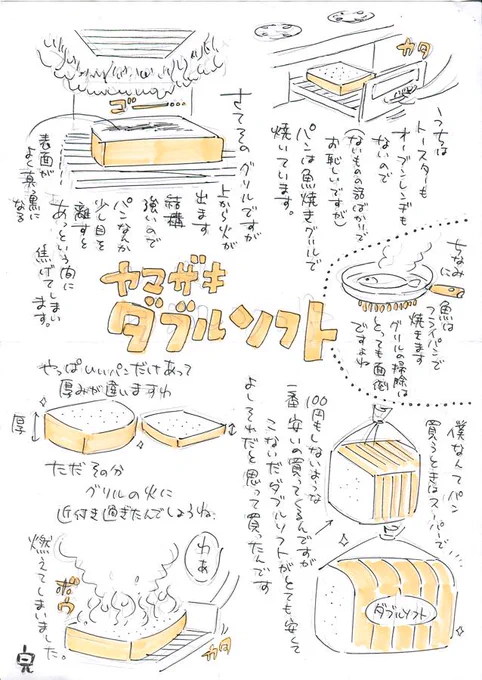 うちは
トースターも
オーブンレンジも
ないので
(ないものの話ばかりで
お恥しいですが)
パンは魚焼きグリルで
焼いています。
カタ
ちなみに
魚は
フライパンで
焼きます
グリルの掃除は
とっても面倒
ですよね
さてそのグリルですが
上から火が
出ます
結構
強いので
パンなんか
少し目を
離すと
あっという間に
焦げてしまいます。
表面が
よく真っ黒に
なる
ゴー
ヤマザキ
ダブルソフト
僕なんてパン
買うときはスーパーで
100円もしないような
一番安いの買ってくるんですが
こないだダブルソフトがとても安くて
よしそれだと思って買ったんです
ダブルソフト
やっぱいいパンだけあって
厚みが違いますわ
厚
ただその分
グリルの火に
近付き過ぎたんでしょうね
わぁ
ボウ
カタ
燃えてしまいました。
完